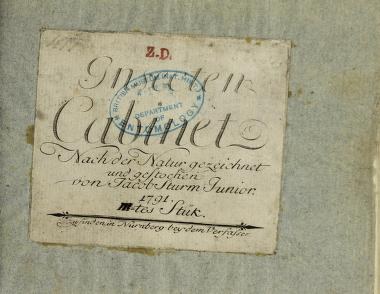 Z.D.
Insecten
Cabinet
BRITISH MUSEUM (NAT. HIST.)
DEPARTMENT
OF
ENTOMOLOGY
Nach der Natur gezeichnet
und gestochen
von Jacob Sturm Junior.
1791.
III-tes Stük.
Zu finden in Nürnberg bey dem Verfasser.